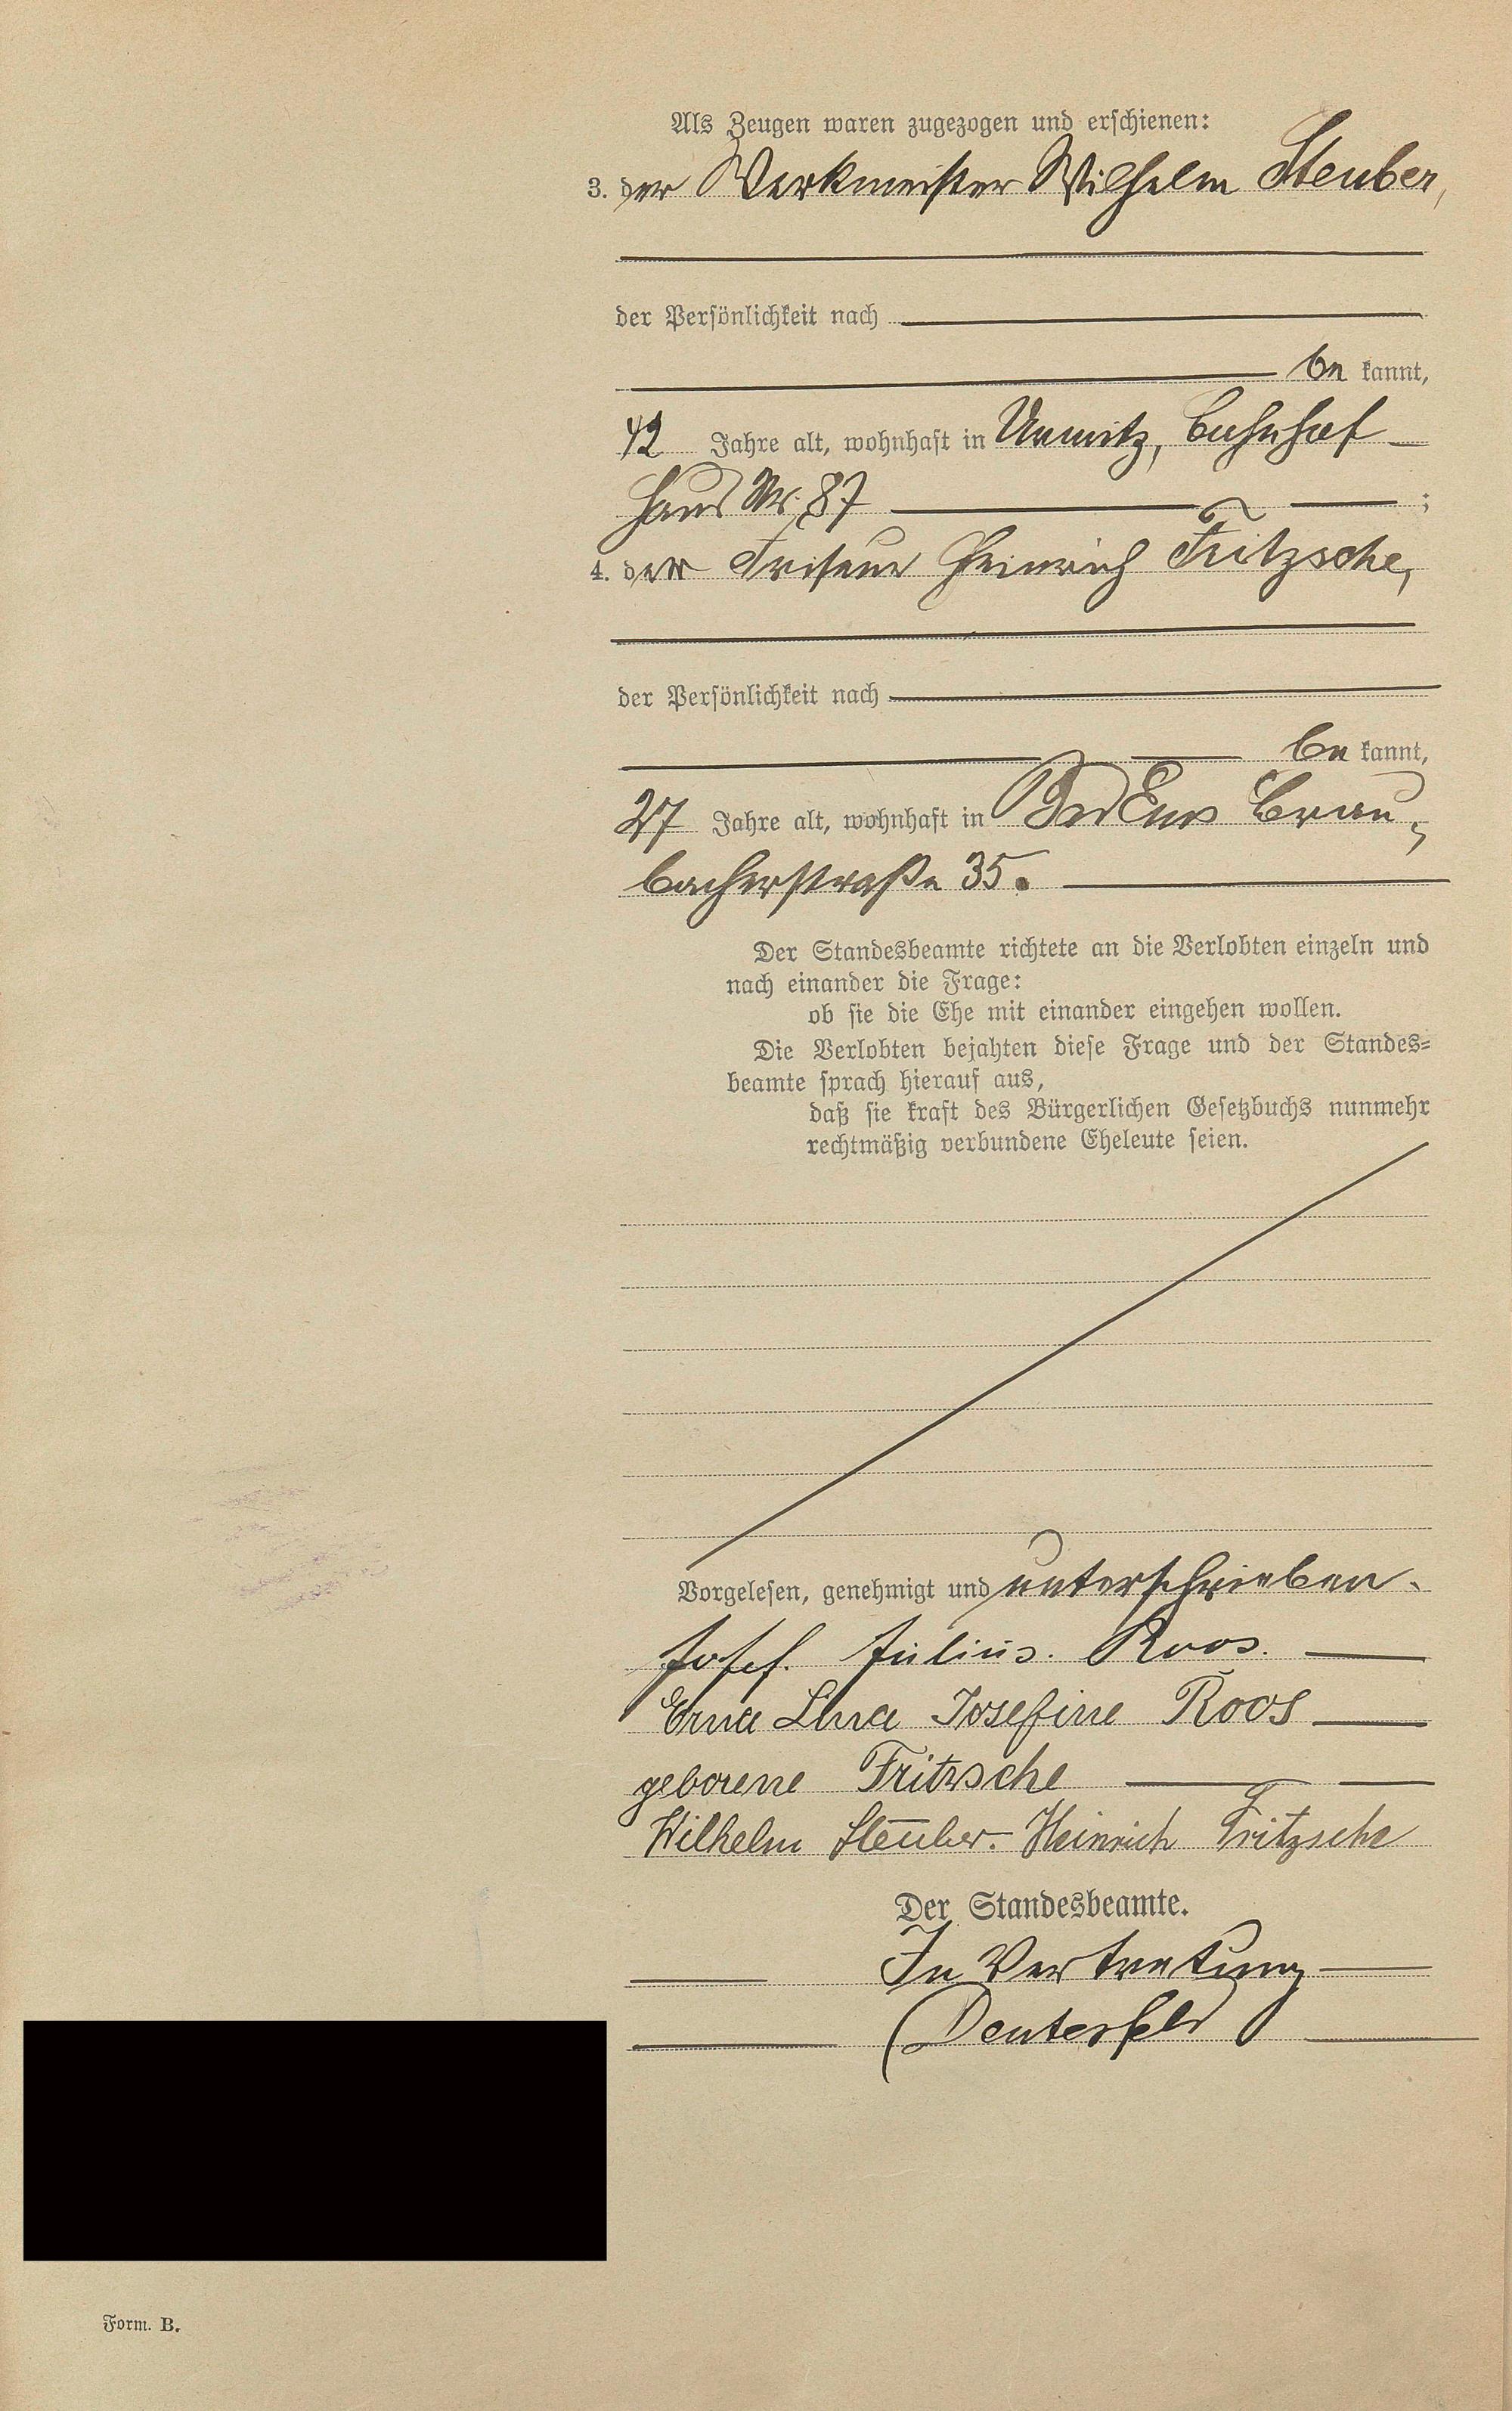 Als Zeugen waren zugezogen und erschienen:
3. der Werkmeister Wilhelm Steuber,
der Persönlichkeit nach
be kannt,
42 Jahre alt, wohnhaft in Urmitz, Bahnhof
Haus Nr. 87 ;
4. der Friseur Heinrich Fritzsche,
der Persönlichkeit nach
be kannt,
27 Jahre alt, wohnhaft in Bad Ems Brau-
bacherstraße 35.
Der Standesbeamte richtete an die Verlobten einzeln und
nach einander die Frage:
ob sie die Ehe mit einander eingehen wollen.
Die Verlobten bejahten diese Frage und der Standes-
beamte sprach hierauf aus,
daß sie kraft des Bürgerlichen Gesetzbuchs nunmehr
rechtmäßig verbundene Eheleute seien.
Vorgelesen, genehmigt und unterschrieben.
Josef. Julius. Roos.
Erna Lina Josefine Roos
geborene Fritzsche
Wilhelm Steuber. Heinrich Fritzsche
Der Standesbeamte.
In Vertretung
Deutesfeld
Form. B.